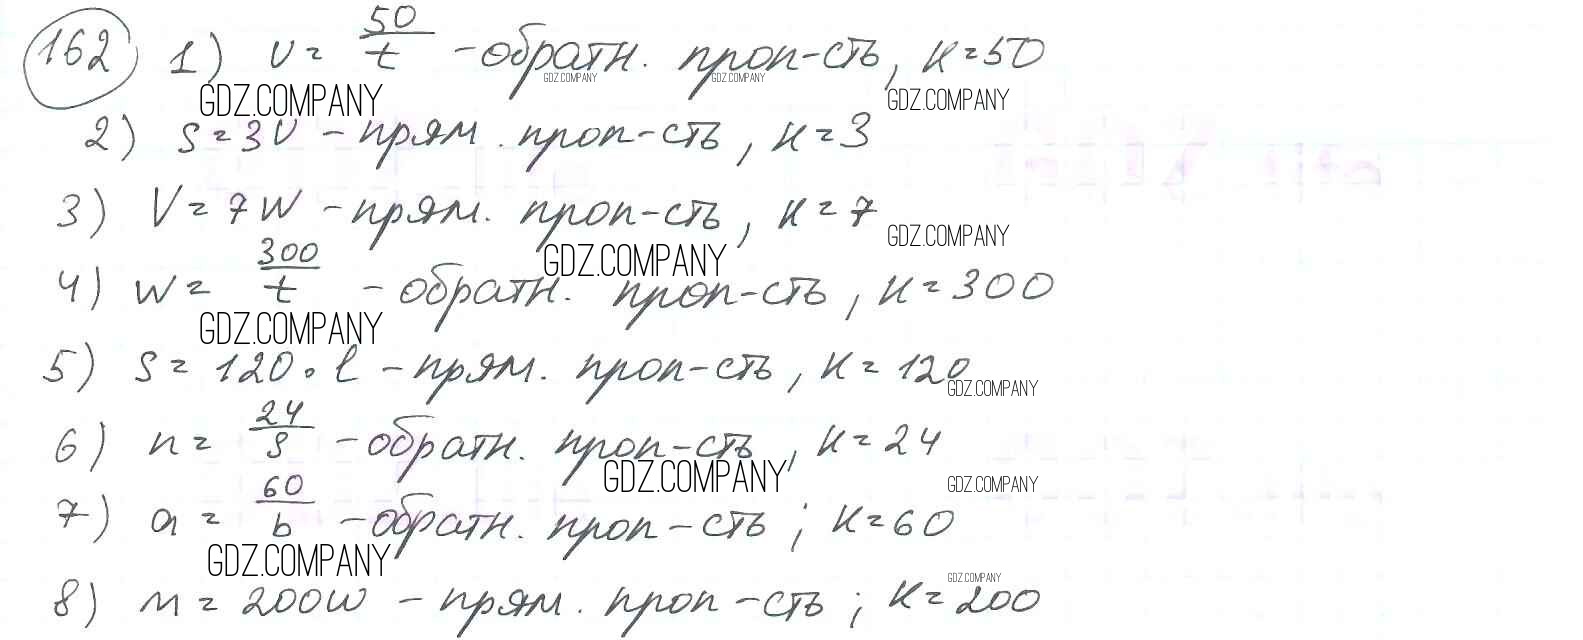 162 1) v = 50/t - обратн. проп-сть, к=50
GDZ.COMPANY GDZ.COMPANY GDZ.COMPANY GDZ.COMPANY
2) s = 3v - прям. проп-сть, к = 3
3) V = 7w - прям. проп-сть, к = 7
GDZ.COMPANY GDZ.COMPANY
4) w = 300/t - обратн. проп-сть, к = 300
GDZ.COMPANY
5) s = 120 · l - прям. проп-сть, к = 120
GDZ.COMPANY
6) n = 24/s - обратн. проп-сть, к = 24
GDZ.COMPANY GDZ.COMPANY
7) a = 60/b - обратн. проп-сть; к = 60
GDZ.COMPANY GDZ.COMPANY
8) m = 200w - прям. проп-сть; к = 200